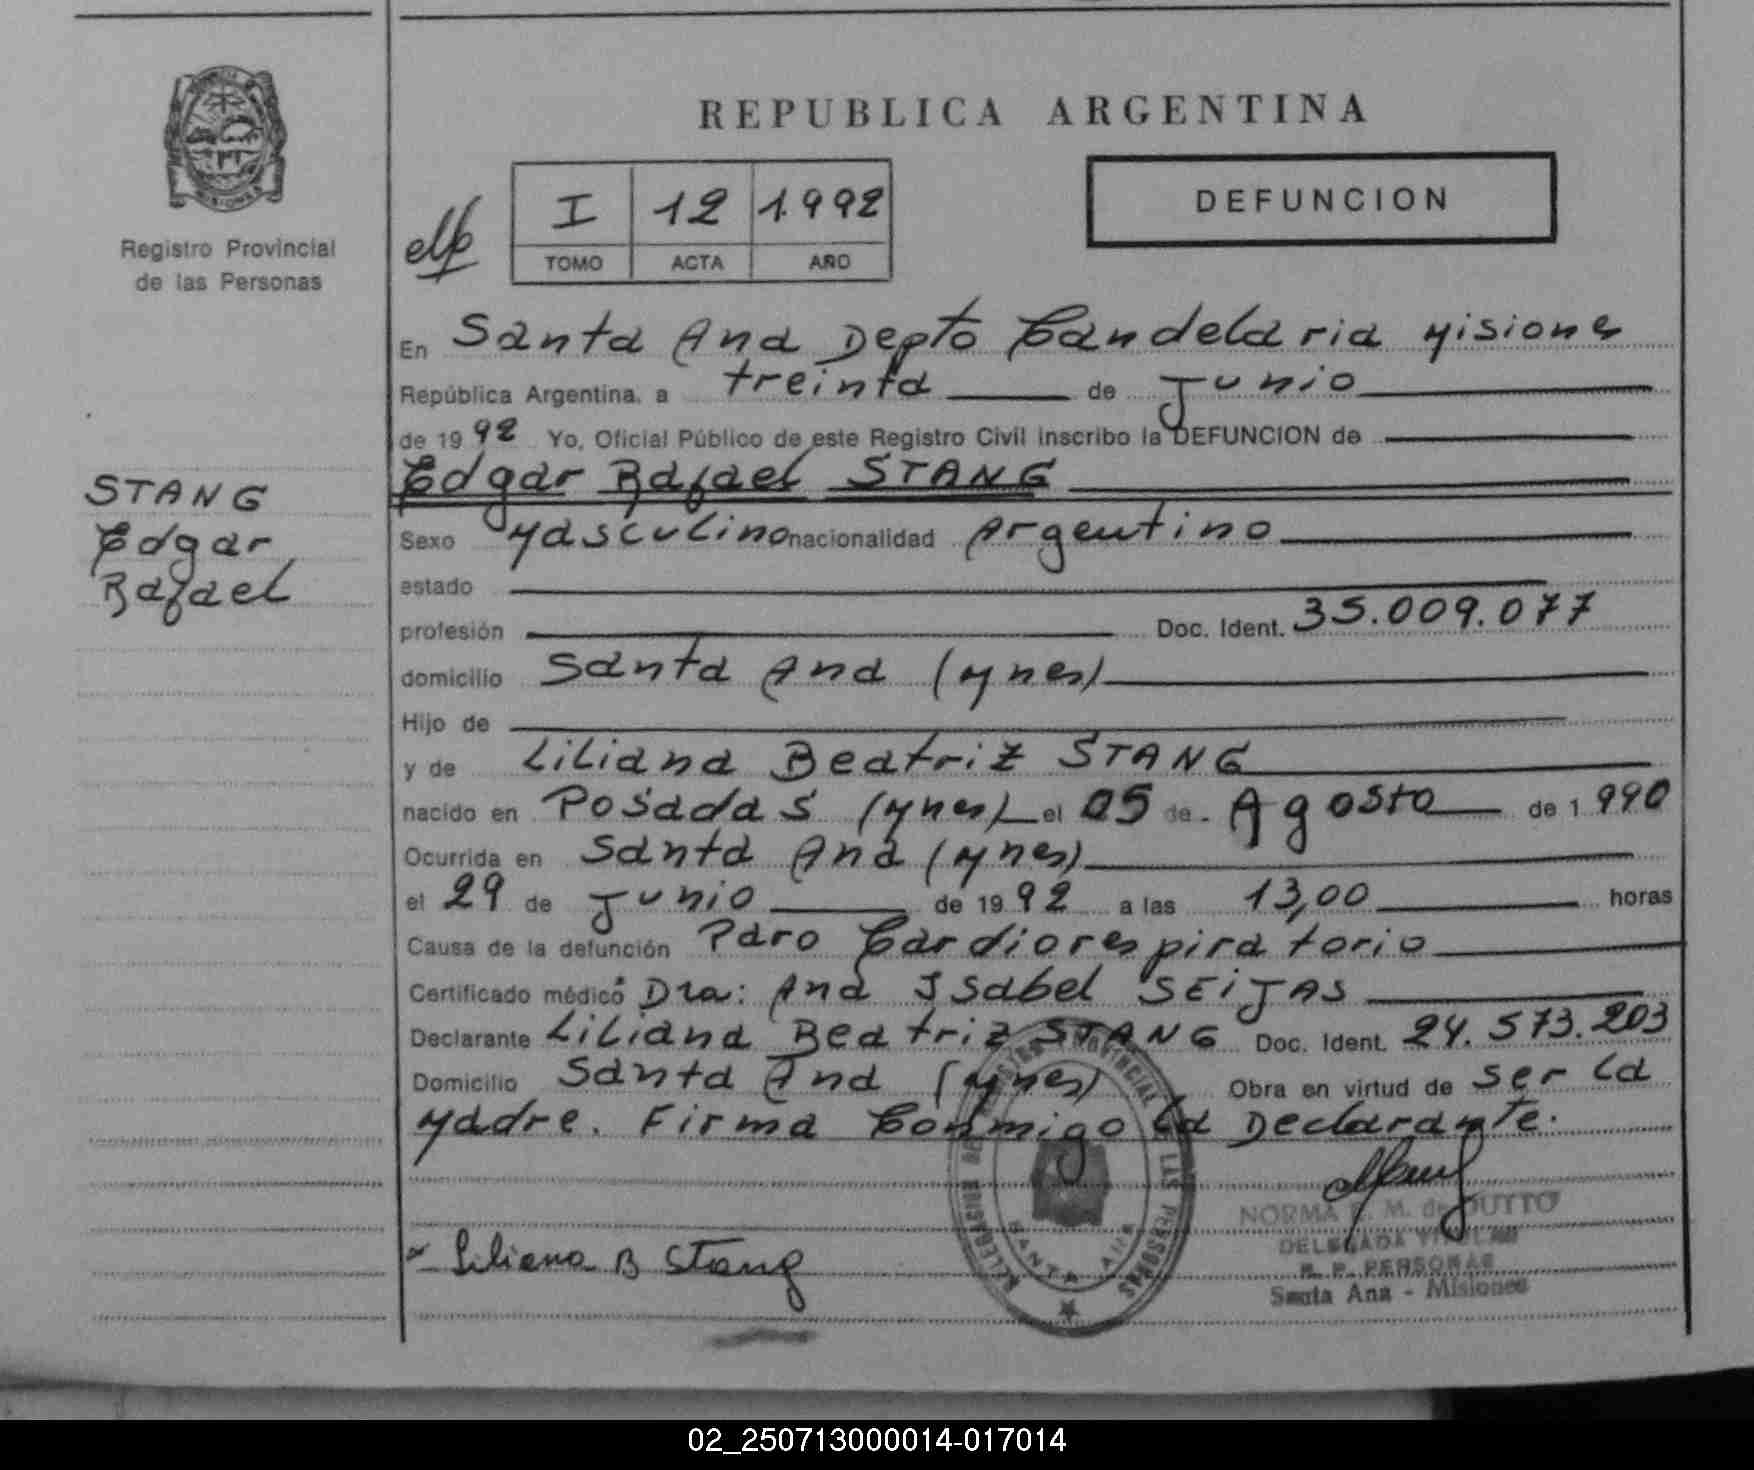 REPUBLICA ARGENTINA
DEFUNCION
I 12 1.992
TOMO ACTA AÑO
Registro Provincial
de las Personas
En Santa Ana Depto Candelaria Misiones
República Argentina, a treinta de Junio
de 1992 Yo, Oficial Público de este Registro Civil inscribo la DEFUNCION de
Edgar Rafael STANG
STANG
Edgar
Rafael
Sexo Masculino nacionalidad Argentino
estado
profesión Doc. Ident. 35.009.077
domicilio Santa Ana (Mnes)
Hijo de
y de Liliana Beatriz STANG
nacido en Posadas (Mnes) el 05 de Agosto de 1990
Ocurrida en Santa Ana (Mnes)
el 29 de Junio de 1992 a las 13,00 horas
Causa de la defunción Paro Cardiorespiratorio
Certificado médico Dra: Ana Isabel SEIJAS
Declarante Liliana Beatriz STANG Doc. Ident. 24.573.203
Domicilio Santa Ana (Mnes) Obra en virtud de ser la
Madre. Firma Conmigo la Declarante.
Liliana B Stang
PROVINCIAL DE LAS PERSONAS
SANTA ANA
NORMA M. de DUTTO
DELEGADA TITULAR
R. P. PERSONAS
Santa Ana - Misiones
02_250713000014-017014